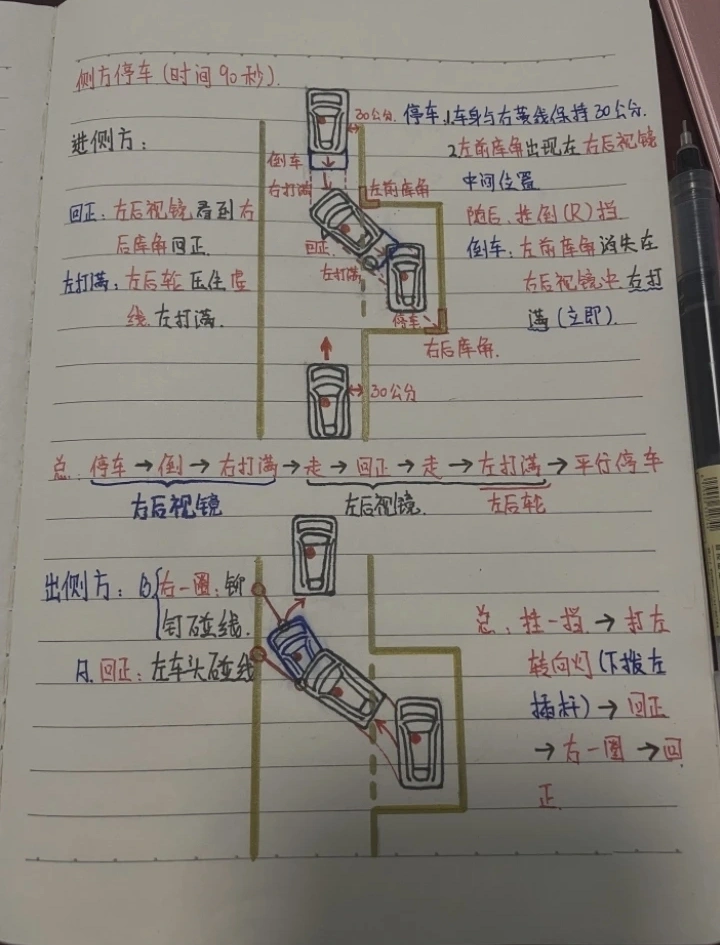 侧方停车(时间90秒).
30公分.
停车.1车身与右黄线保持30公分.
进侧方:
2左前库角出现在右后视镜
中间位置
倒车
右打满
左前库角
回正:左后视镜看到右
后库角回正.
随后.挂倒(R)挡
倒车:左前库角消失在
右后视镜中右打
满(立即).
回正.
左打满
左打满:左后轮压住虚
线.左打满.
停车
右后库角.
30公分
总.停车→倒→右打满→走→回正→走→左打满→平行停车
右后视镜
左后视镜.
左后轮
出侧方:
右一圈:铆
钉碰线.
回正:左车头碰线
总.挂一挡→打左
转向灯(下拨左
插杆)→回正
→右一圈→回
正.